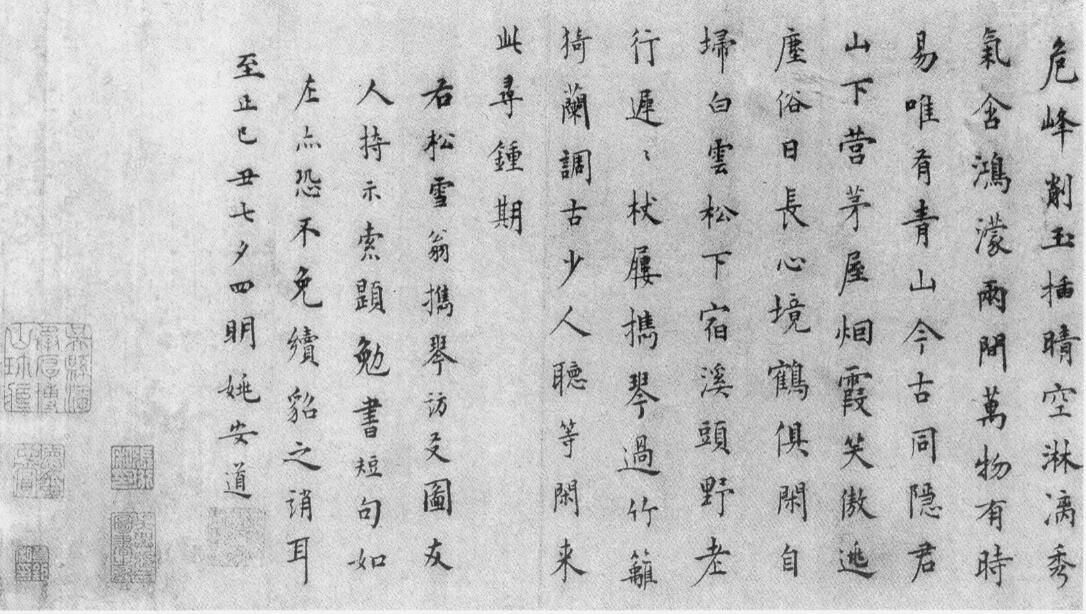 危峰削玉插晴空淋漓秀
氣含鴻濛兩間萬物有時
易唯有青山今古同隐君
山下营茅屋烟霞笑傲逃
塵俗日長心境鶴俱閑自
埽白雲松下宿溪頭野老
行遲〻杖屨携琴過竹籬
猗蘭調古少人聽等閑来
此尋鍾期
右松雪翁携琴访友圖友
人持示索題勉書短句如
左点恐不免續貂之誚耳
至正己丑七夕四明姚安道